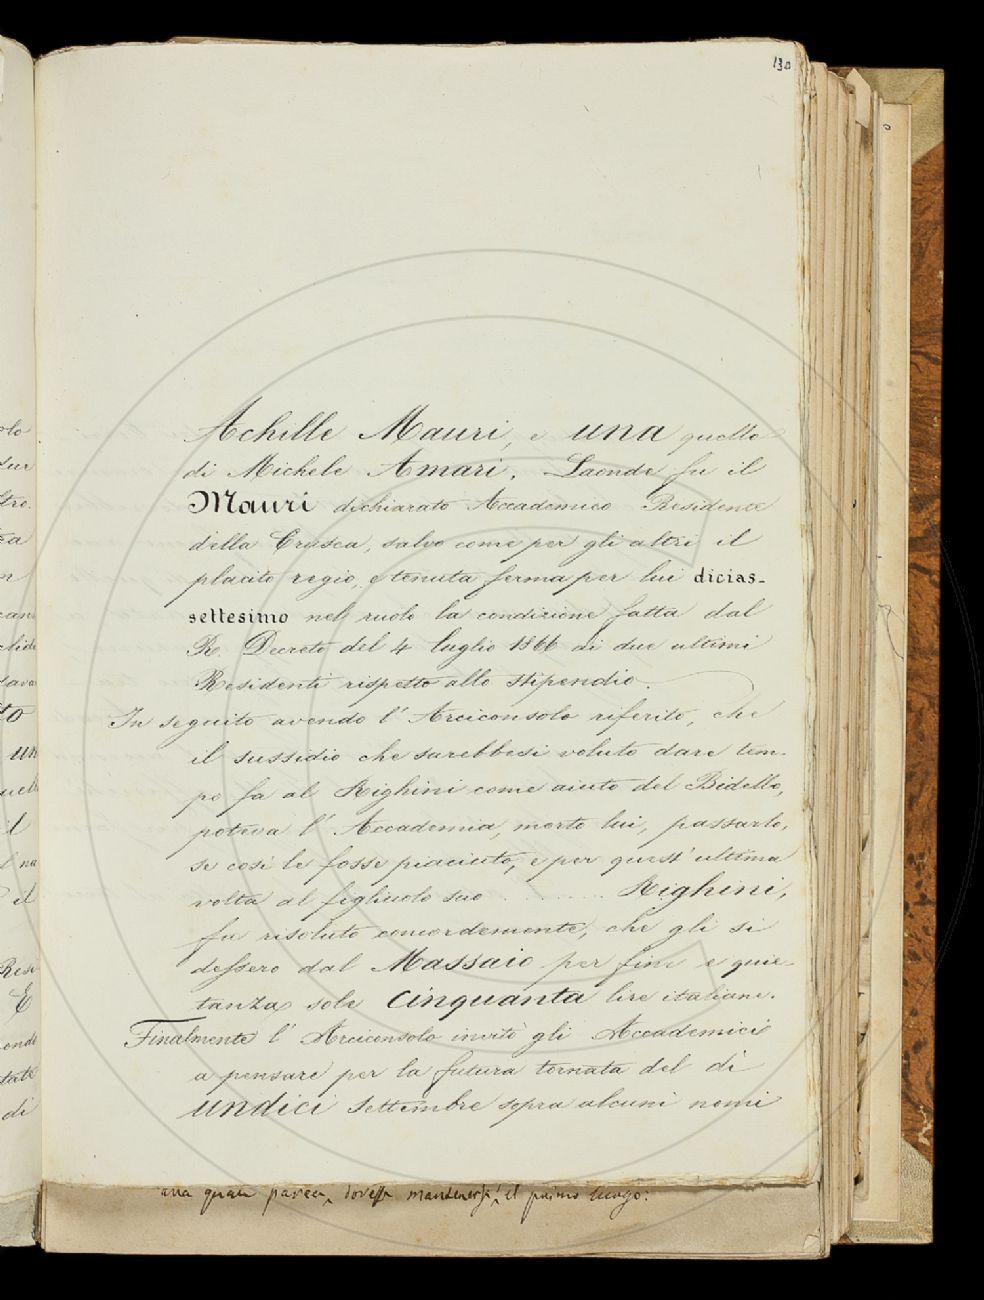 130
Achille Mauri, e una quello
di Michele Amari. Laonde fu il
Mauri dichiarato Accademico Residente
della Crusca, salvo come per gli altri il
placito regio, e tenuta ferma per lui dicias-
settesimo nel ruolo la condizione fatta dal
R. Decreto del 4 luglio 1866 ai due ultimi
Residenti rispetto allo stipendio.
In seguito avendo l'Arciconsolo riferito, che
il sussidio che sarebbesi voluto dare tem-
po fa al Righini come aiuto del Bidello,
poteva l'Accademia, morto lui, passarlo,
se così le fosse piaciuto, e per quest'ultima
volta al figliuolo suo ........ Righini,
fu risoluto concordemente, che gli si
dessero dal Massaio per fine e quie-
tanza sole cinquanta lire italiane.
Finalmente l'Arciconsolo invitò gli Accademici
a pensare per la futura tornata del dì
undici settembre sopra alcuni nomi
alla quale pareva, dovesse mantenersi il primo luogo:
olo
tro.
ca
n
to
un
il
il
E
di